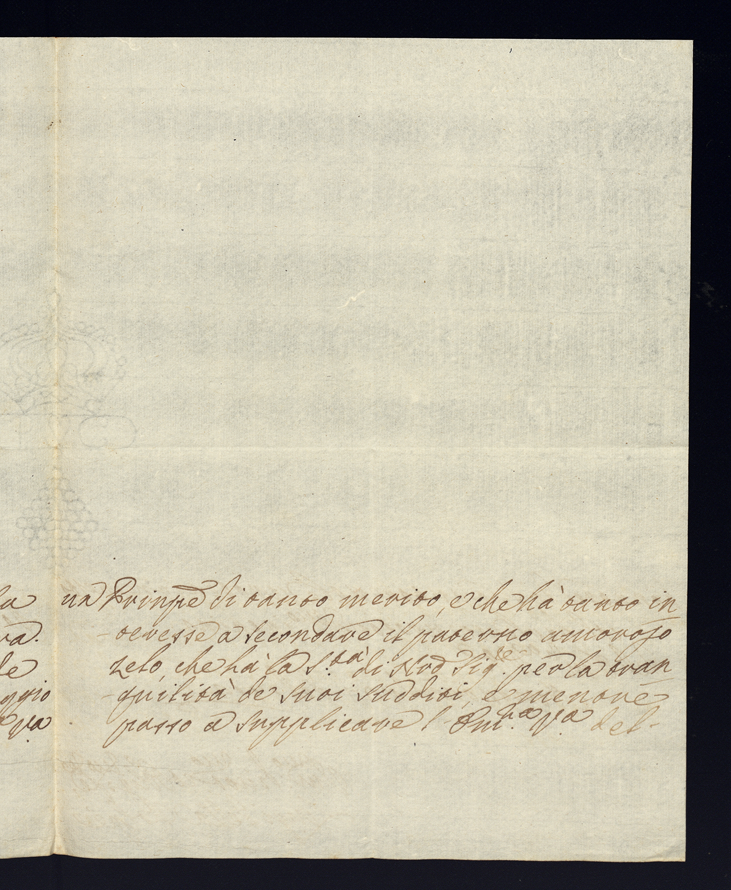 la
ra.
le
ggio
Va
un Prinpe di tanto merito, e che hà tanto in
-teresse a secondare il paterno amoroso
zelo, che hà la S.tà di Nro Sig.re per la tran
-quilità de suoi sudditi, e mentre
passo a supplicare l'Em.za Va del-